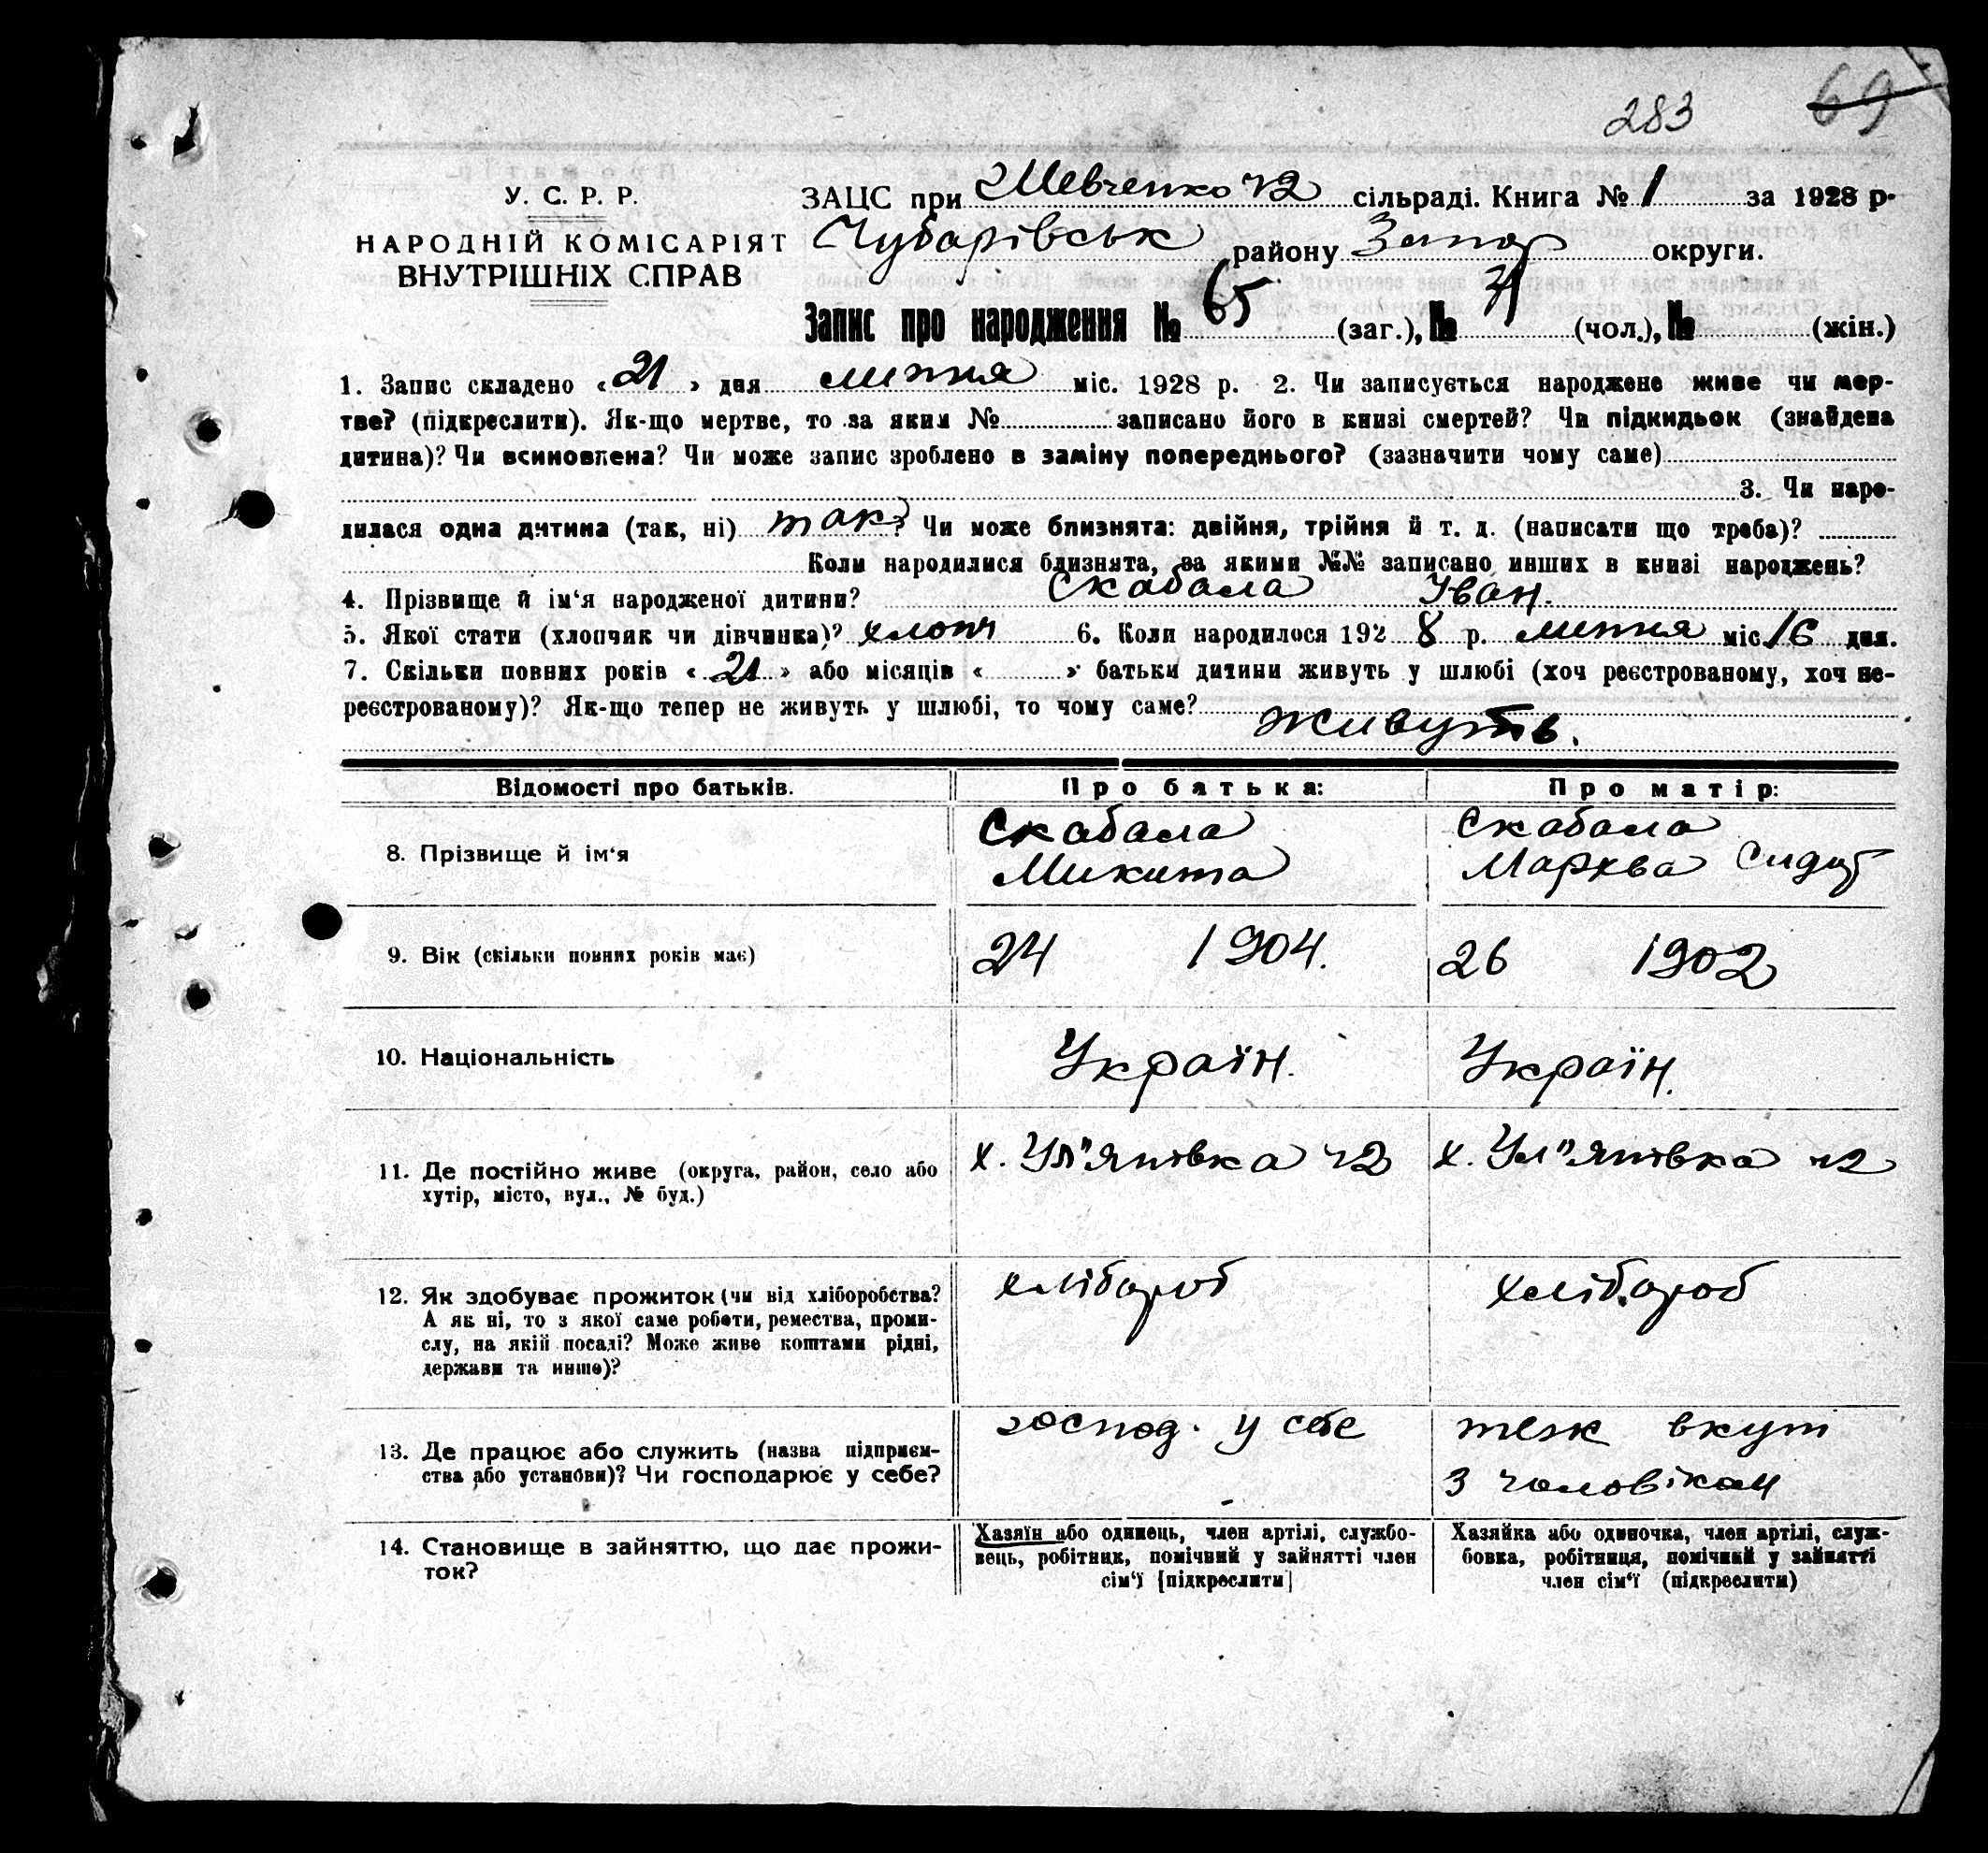 283 69
У. С. Р. Р.
НАРОДНІЙ КОМІСАРІЯТ
ВНУТРІШНІХ СПРАВ
ЗАЦС при Шевченко ч2 сільраді. Книга № 1 за 1928 р.
Чубарівськ району Запор округи.
Запис про народження № 65 (заг.), № (чол.), № (жін.)
1. Запис складено «21» дня липня міс. 1928 р. 2. Чи записується народжене живе чи мер-
тве? (підкреслити). Як-що мертве, то за яким № записано його в книзі смертей? Чи підкидьок (знайдена
дитина)? Чи всиновлена? Чи може запис зроблено в заміну попереднього? (зазначити чому саме)
3. Чи наро-
дилася одна дитина (так, ні) так? Чи може близнята: двійня, трійня й т. д. (написати що треба)?
Коли народилися близнята, за якими №№ записано инших в книзі народжень?
4. Прізвище й ім‘я народженої дитини? Скабала Іван.
5. Якої стати (хлопчик чи дівчинка)? хлопч 6. Коли народилося 1928 р. липня міс. 16 дня.
7. Скільки повних років «21» або місяців « » батьки дитини живуть у шлюбі (хоч реєстрованому, хоч не-
реєстрованому)? Як-що тепер не живуть у шлюбі, то чому саме?
живуть.
Відомості про батьків. Про батька: Про матір:
8. Прізвище й ім‘я
Скабала
Микита
Скабала
Мархва Сидор
9. Вік (скільки повних років має) 24 1904. 26 1902
10. Національність Україн. Україн.
11. Де постійно живе (округа, район, село або
хутір, місто, вул., № буд.)
х. Ул"янівка ч2
х. Ул"янівка ч2
12. Як здобуває прожиток (чи від хліборобства?
А як ні, то з якої саме роботи, ремества, проми-
слу, на якій посаді? Може живе коштами рідні,
держави та инше)?
хлібороб
хлібороб
13. Де працює або служить (назва підприєм-
ства або установи)? Чи господарює у себе?
господ. у себе
теж вкуп
з чоловіком
14. Становище в зайняттю, що дає прожи-
ток?
Хазяїн або одинець, член артілі, службо-
вець, робітник, помічний у зайнятті член
сім‘ї [підкреслити]
Хазяйка або одиночка, член артілі, служ-
бовка, робітниця, помічний у зайнятті
член сім‘ї (підкреслити)